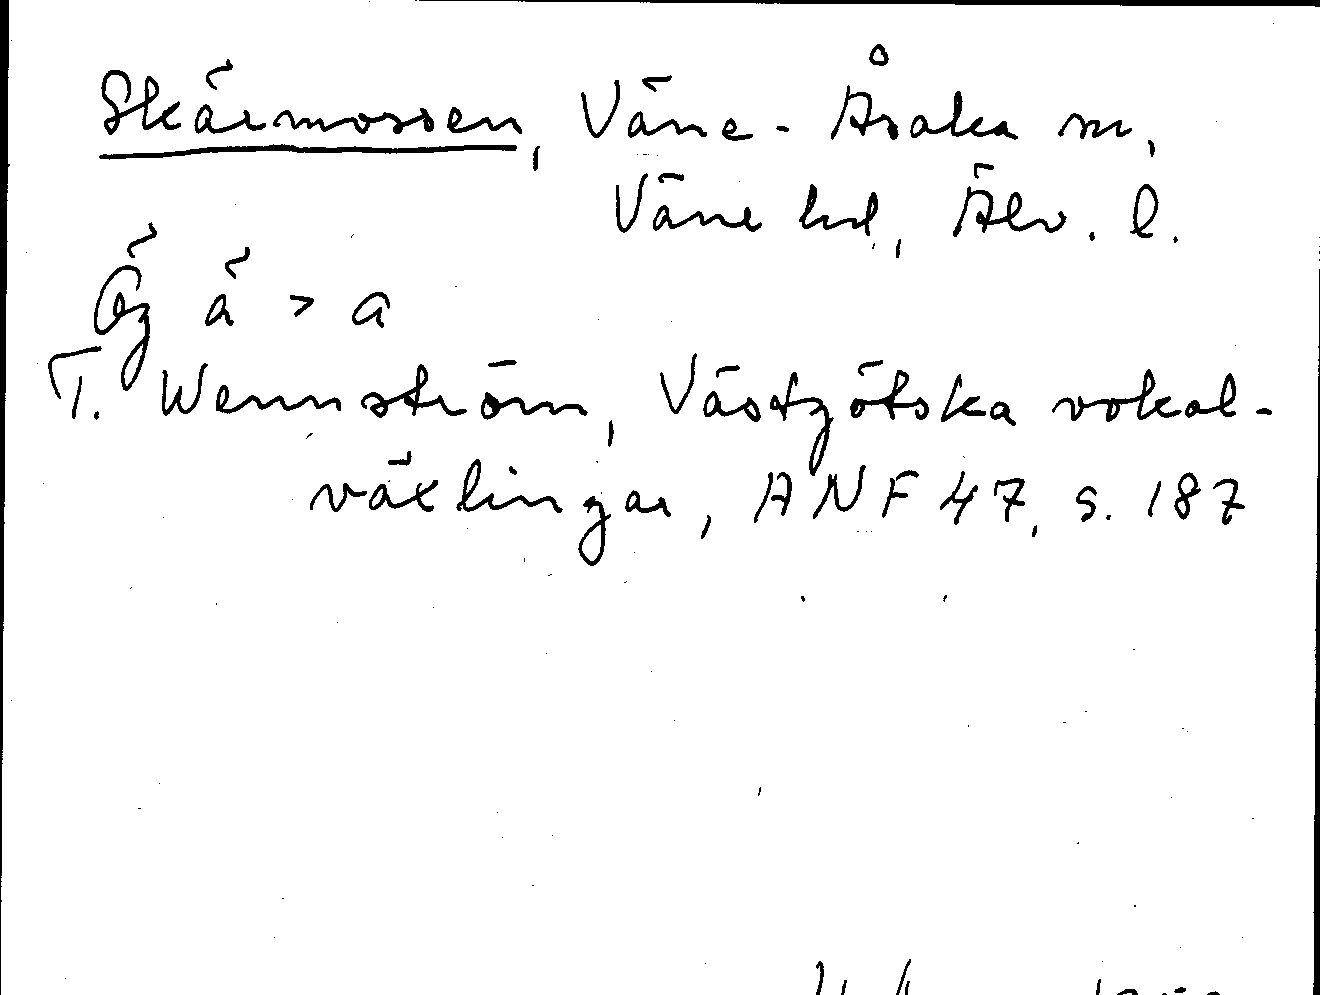 Skärmossen, Väne-Åsaka sn,
Väne hd, Älv. l.
Ög ä > a
T. Wennström, Västgötska vokal-
växlingar, ANF 47, s. 187